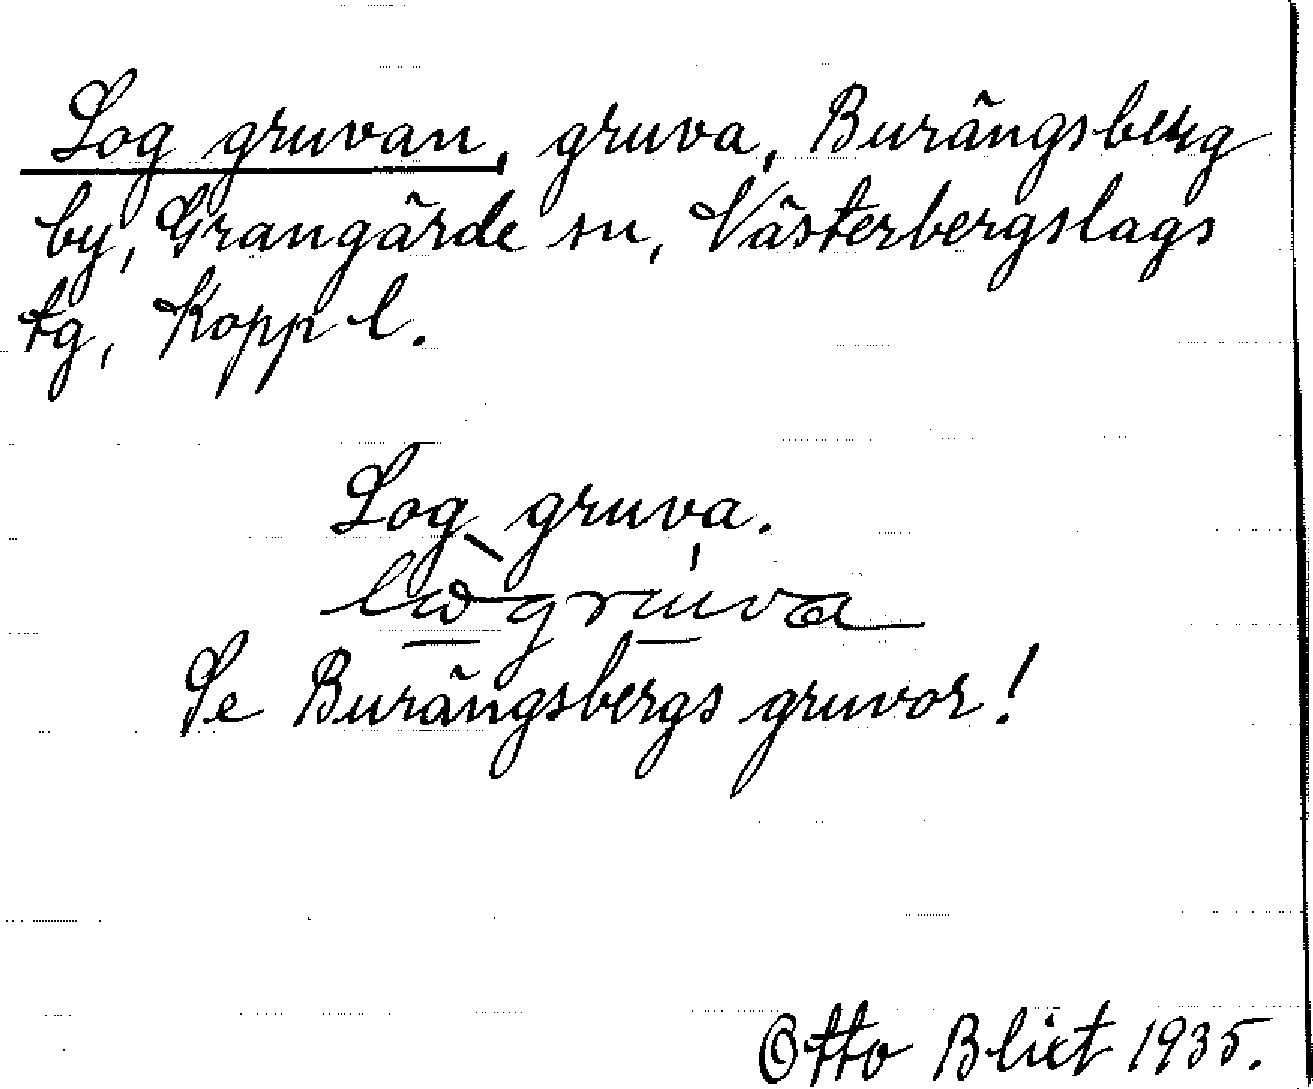 Log gruvan, gruva, Burängsberg
by, Grangärde sn, Västerbergslags
tg, Kopp l.
Log gruva.
Se Burängsbergs gruvor!
Otto Blixt 1935.